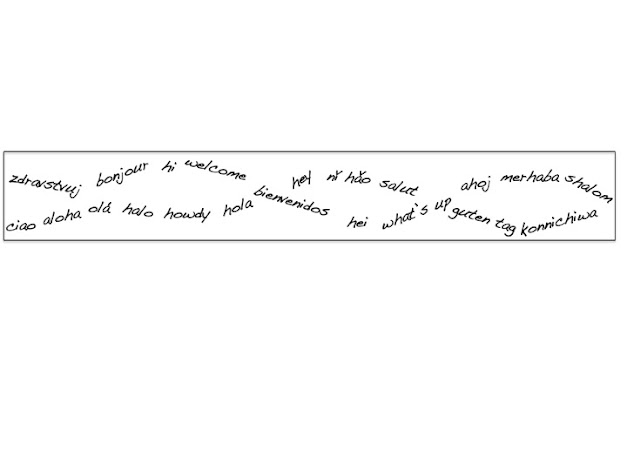 zdravstvuj bonjour hi welcome hey nǐ hǎo salut ahoj merhaba shalom
ciao aloha olá halo howdy hola bienvenidos hei what's up guten tag konnichiwa